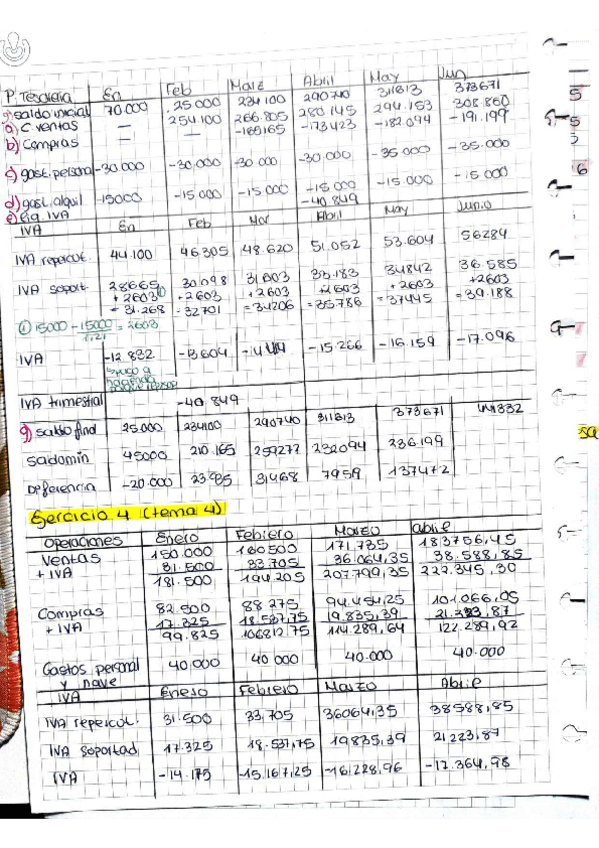 P. Tesorería En Feb Marz Abril May Jun
g) saldo inicial 70.000 25.000 234.100 290740 311813 373671
a) C ventas — 254.100 266.805 280.145 294.153 308.860
b) Compras — — -165165 -173423 -182.094 -191.199
c) gast. personal -30.000 -30.000 -30 000 -30.000 -35 000 -35.000
d) gast. alquil -15000 -15.000 -15.000 -15 000 -15 000 -15 000
e) liq. IVA -40.849
IVA En Feb Mar Abril May Junio
IVA repercut. 44.100 46305 48.620 51.052 53.604 56284
IVA soport. 28665 30.098 31603 33.183 34842 36.585
+2603 +2603 +2603 +2603 +2603 +2603
= 31.268 = 32701 = 34206 = 35786 = 37445 = 39.188
① 15000 - 15000/1,21 = 2603
IVA -12.832 -13604 -15.266 -16.159 -17.096
IVA trimestral -40.849
g) saldo final 25.000 234100 290740 311813 373671
saldomin 45000 210.165 259272 236.199
Diferencia -20.000 31468 137472
Ejercicio 4 (tema 4)
Operaciones Enero Febrero Marzo abril
Ventas 150.000 160500 171.735 183756,45
+ IVA 31.500 33.705 36.064,35 38.588,85
181.500 194.205 207.799,35 222.345,30
Compras 82.500 88.275 94.454,25 101.066,05
+ IVA 17.325 18.537,75 19.835,39
99.825 106812,75 114.289,64 122.289,92
Gastos personal 40.000 40 000 40.000 40.000
y nave
IVA Enero Febrero Marzo Abril
IVA repercut. 31.500 33,705 36064,35 38588,85
IVA soportad 17.325 18.537,75 19835,39 21223,87
IVA -14.175 -15.167,25 -16.228,96 -17.364,98